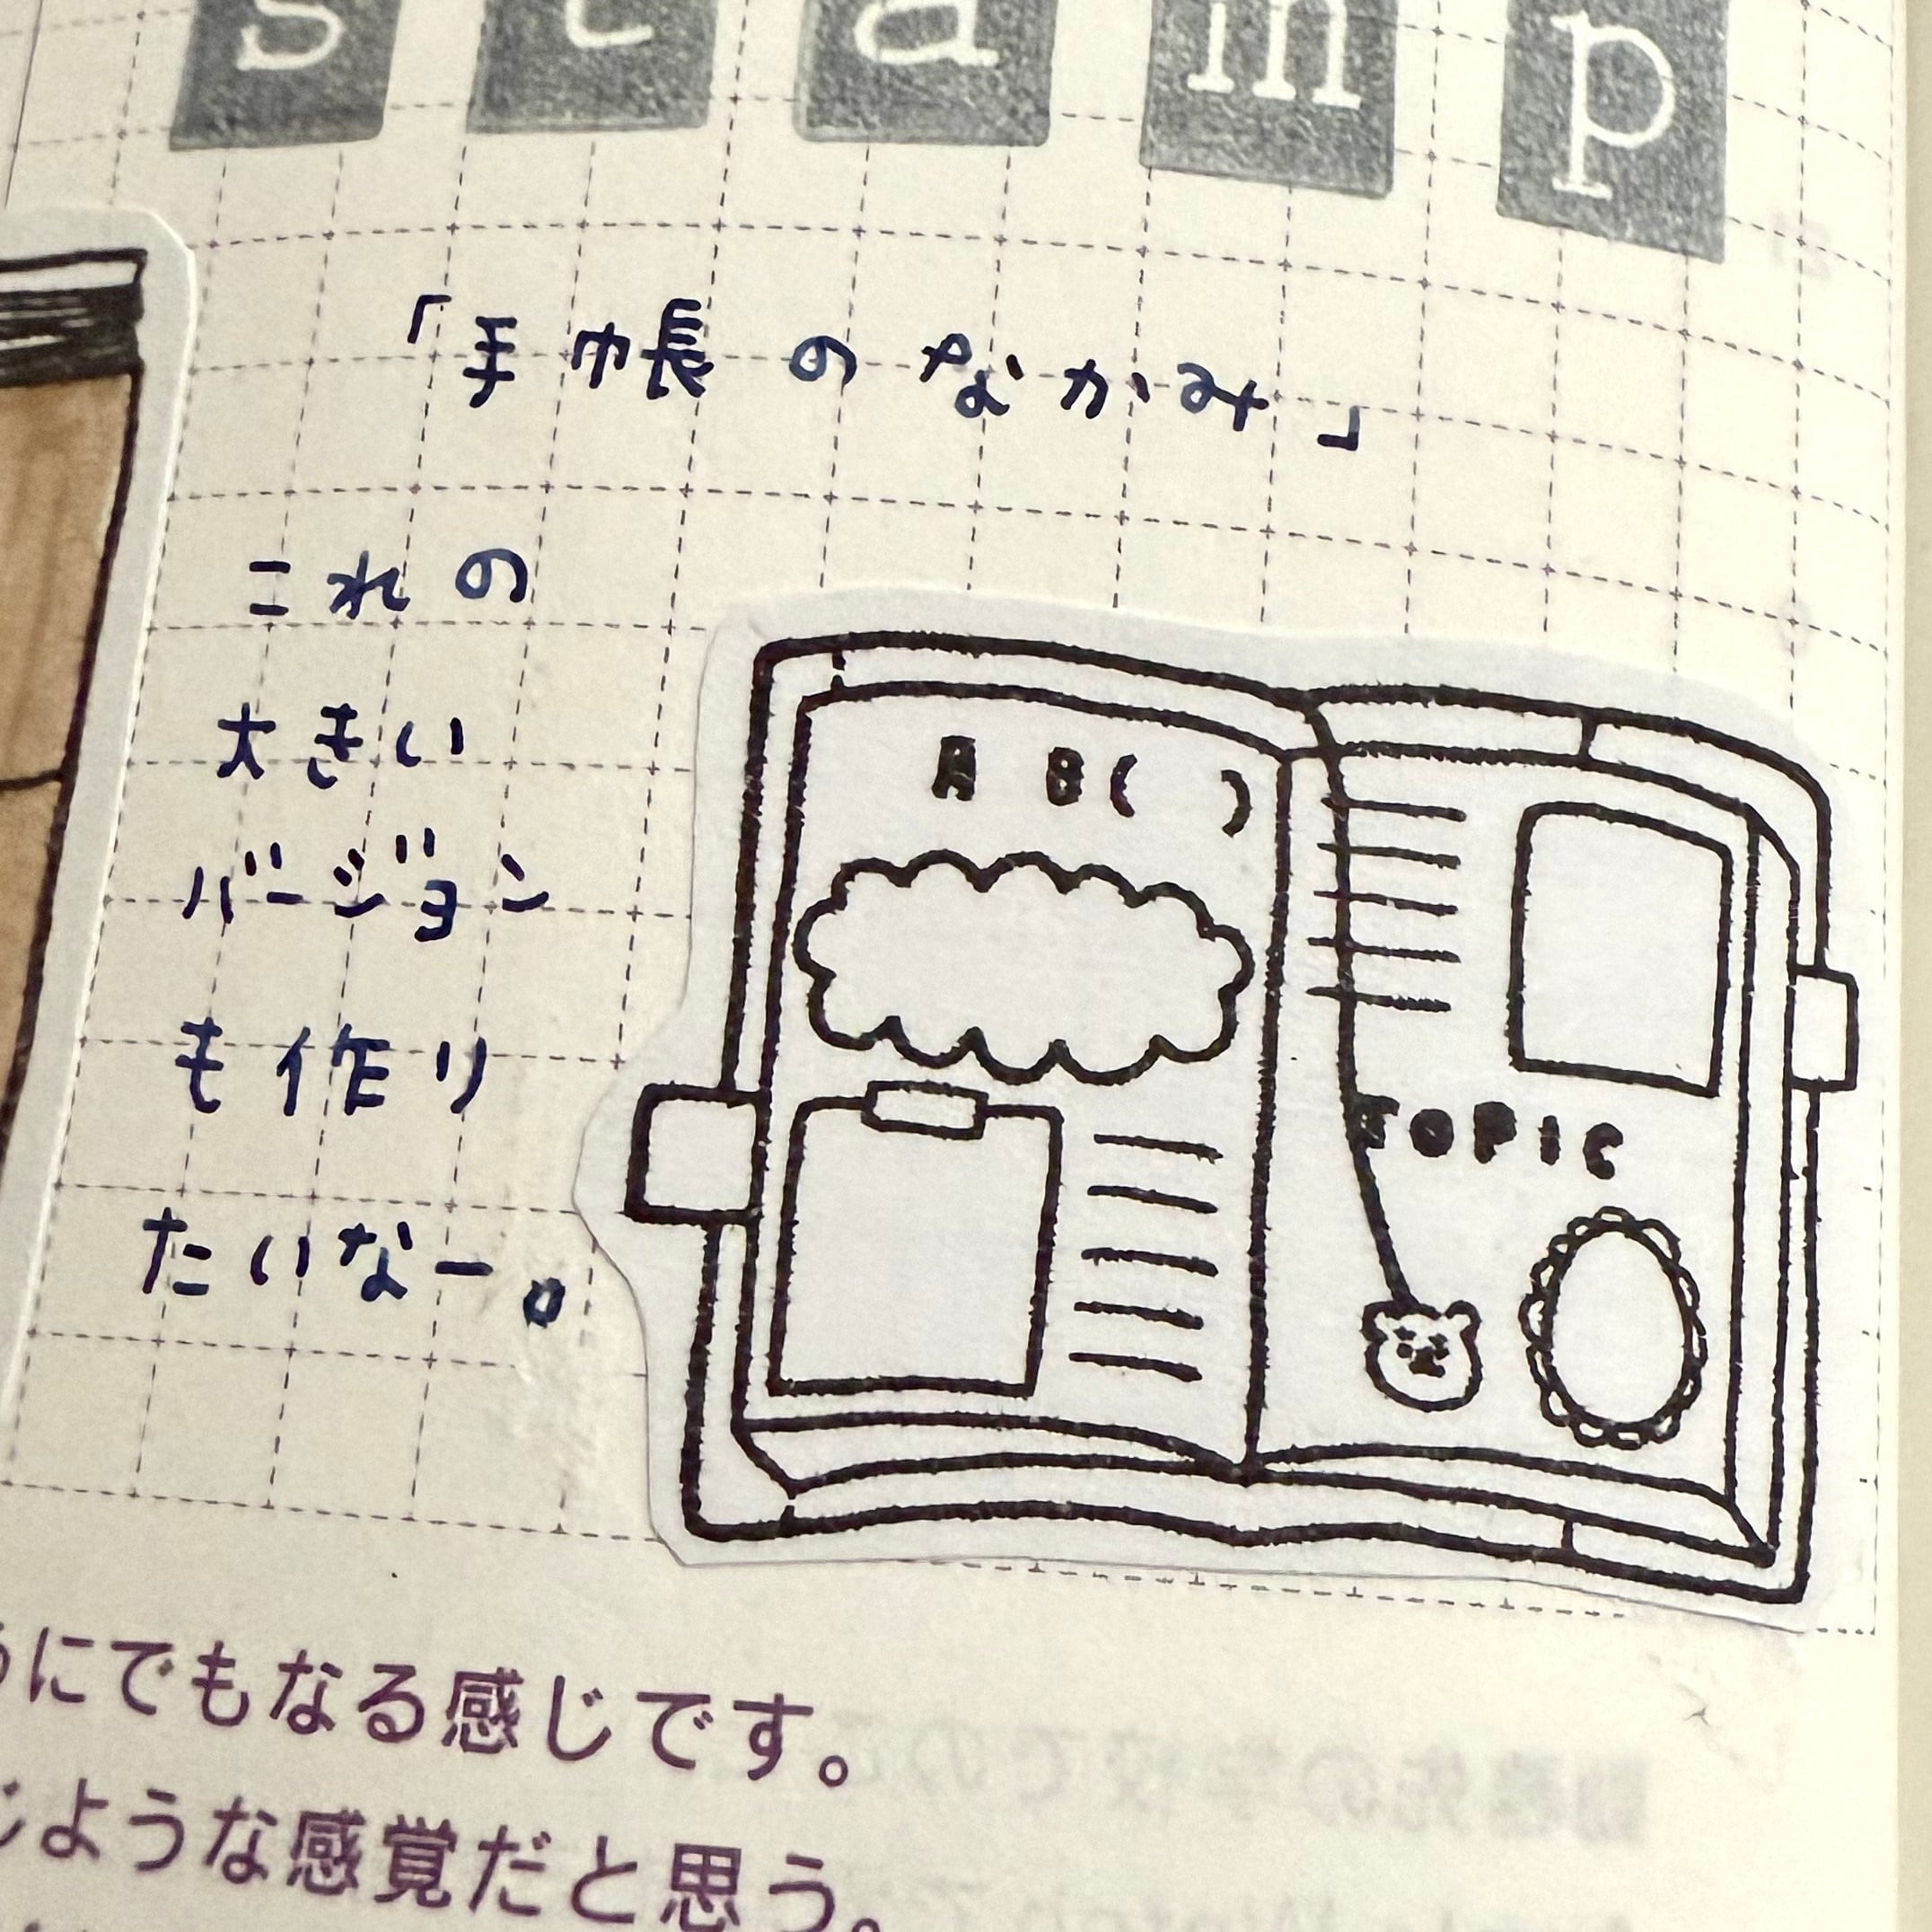 stamp
「手帳のなかみ」
これの
大きい
バージョン
も作り
たいなー。
ABC
TOPIC
うにでもなる感じです。
じような感覚だと思う。